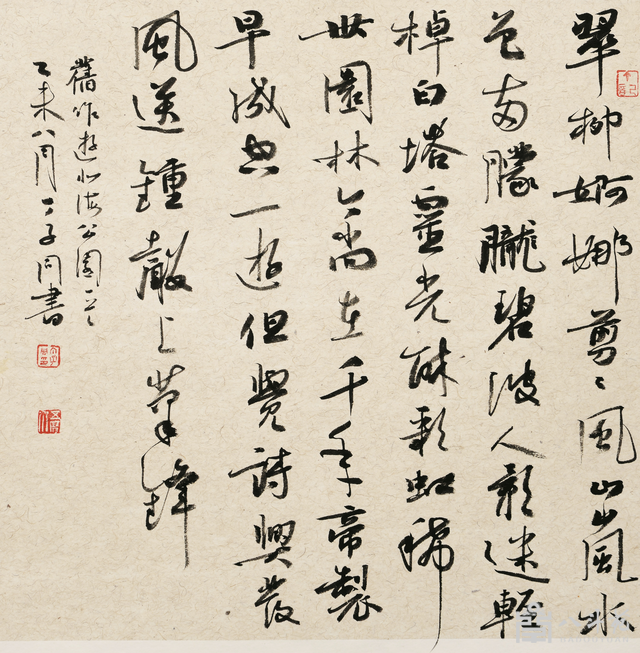 翠柳婀娜剪々風山嵐水
色兩朦朧碧波人影迷輕
棹白塔靈光彩虹稀
世園林今尚在千年帝製
早成空一遊但覺詩興發
風送鐘聲上筆鋒
舊作遊北海公園一
乙未八月丁子同書